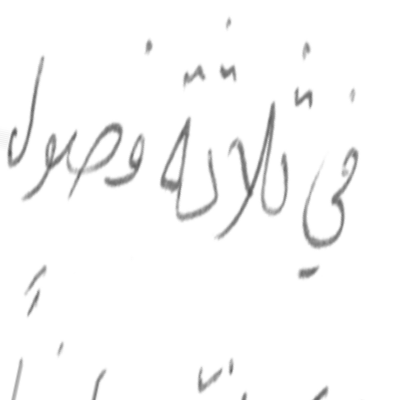 في ثلاثة فصول